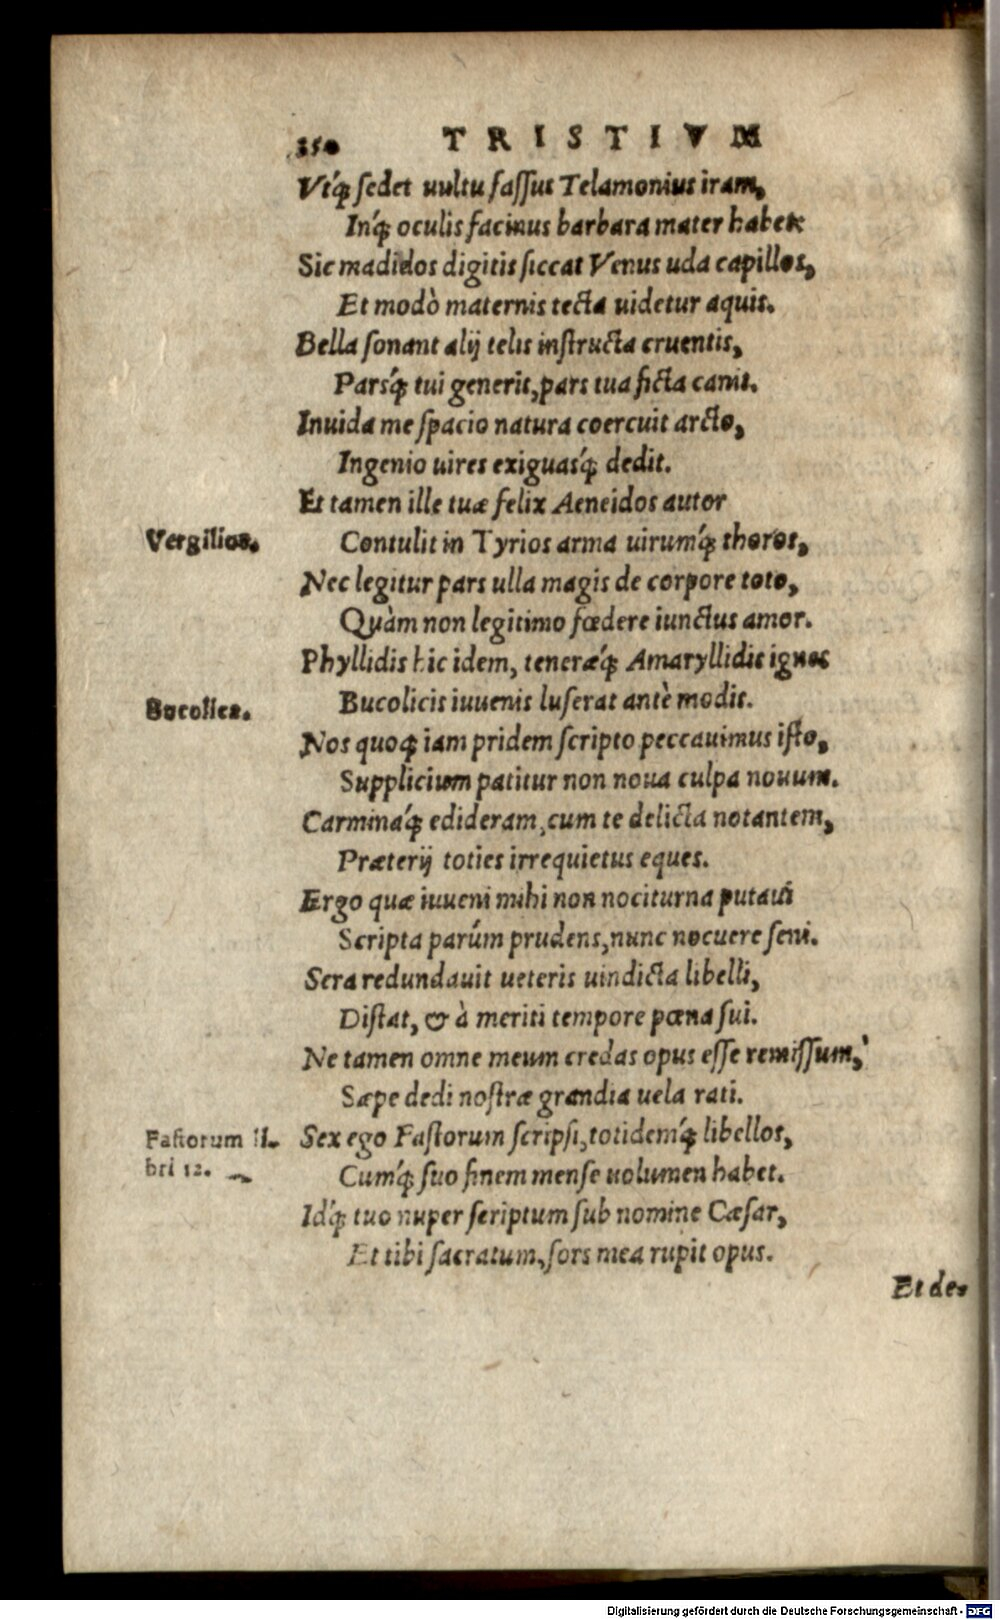 350 TRISTIVM
Vtq́; sedet uultu fassus Telamonius iram,
Inq́; oculis facinus barbara mater habet:
Sic madidos digitis siccat Venus uda capillos,
Et modò maternis tecta uidetur aquis.
Bella sonant alij telis instructa cruentis,
Parsq́; tui generis, pars tua ficta canit.
Inuida me spacio natura coercuit arcto,
Ingenio uires exiguasq́; dedit.
Et tamen ille tuæ felix Aeneidos autor
Vergilius. Contulit in Tyrios arma uirumq́; thoros,
Nec legitur pars ulla magis de corpore toto,
Quàm non legitimo fœdere iunctus amor.
Phyllidis hic idem, teneræq́; Amaryllidis ignes
Bucolica. Bucolicis iuuenis luserat antè modis.
Nos quoq; iam pridem scripto peccauimus isto,
Supplicium patitur non noua culpa nouum.
Carminaq́; edideram, cum te delicta notantem,
Præterij toties irrequietus eques.
Ergo quæ iuueni mihi non nocitura putaui
Scripta parúm prudens, nunc nocuere seni.
Sera redundauit ueteris uindicta libelli,
Distat, & à meriti tempore pœna sui.
Ne tamen omne meum credas opus esse remissum,
Sæpe dedi nostræ grandia uela rati.
Fastorum li- Sex ego Fastorum scripsi, totidemq́; libellos,
bri 12. Cumq́; suo finem mense uolumen habet.
Idq́; tuo nuper scriptum sub nomine Cæsar,
Et tibi sacratum, sors mea rupit opus.
Et de-
Digitalisierung gefördert durch die Deutsche Forschungsgemeinschaft - DFG